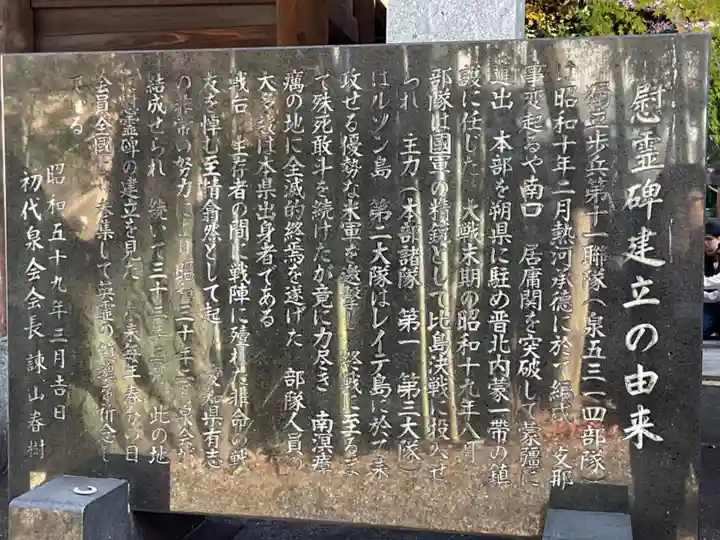 慰霊碑建立の由来
獨立歩兵第十一聯隊(泉五三一四部隊)
は昭和十年二月熱河承德に於て編成 支那
事変起るや南口 居庸関を突破して蒙疆に
進出 本部を朔県に駐め晋北内蒙一帯の鎮
設に任じた 大戦末期の昭和十九年八月
部隊は國軍の精鋭として比島決戦に投入せ
られ 主力(本部諸隊 第一 第三大隊)
はルソン島 第二大隊はレイテ島に於て来
攻せる優勢な米軍を邀撃し 終戦に至るま
で殊死敢斗を続けたが竟に力尽き 南溟瘴
癘の地に全滅的終焉を遂げた 部隊人員の
大多数は本県出身者である
戦后 生存者の間に戦陣に殪れた非命の戦
友を悼む至情翕然として起り 愛知県有志
の非常の努力により昭和三十年二月泉会が
結成せられ 続いて三十三年三月 此の地
に慰霊碑の建立を見た 尓来毎年春分の日
会員全國より参集して英霊の冥福を祈念し
ている
昭和五十九年三月吉日
初代泉会会長 諌山春樹